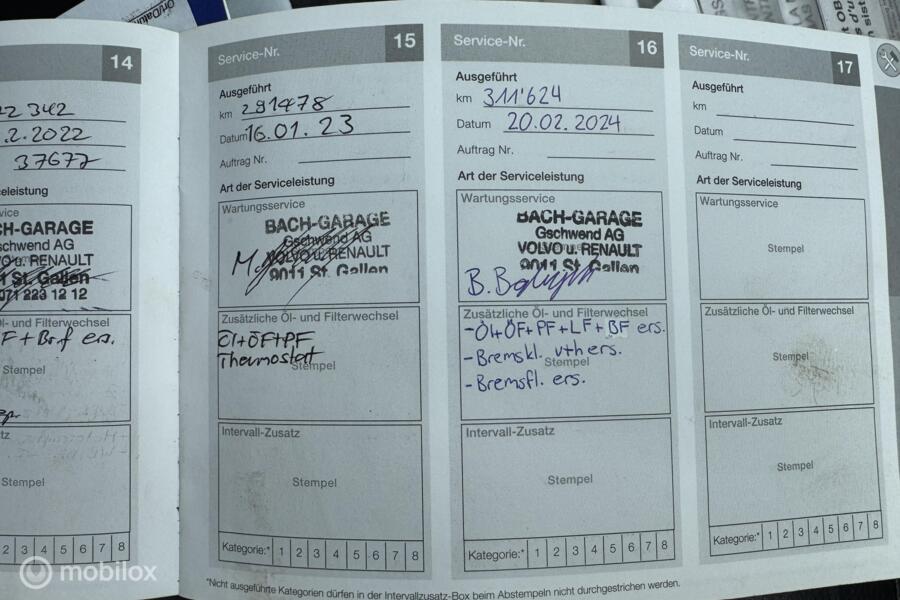 14
342
.2.2022
37677
eleistung
vice
CH-GARAGE
schwend AG
O u. RENAULT
1 St. Gallen
071 223 12 12
l- und Filterwechsel
F + Brf ers.
Stempel
tz
Stempel
2 3 4 5 6 7 8
Service-Nr. 15
Ausgeführt
km 291478
Datum 16.01.23
Auftrag Nr.
Art der Serviceleistung
Wartungsservice
BACH-GARAGE
Gschwend AG
VOLVO u. RENAULT
9011 St. Gallen
Zusätzliche Öl- und Filterwechsel
Öl+ÖF+PF
Thermostart
Stempel
Intervall-Zusatz
Stempel
Kategorie:* 1 2 3 4 5 6 7 8
Service-Nr. 16
Ausgeführt
km 311'624
Datum 20.02.2024
Auftrag Nr.
Art der Serviceleistung
Wartungsservice
BACH-GARAGE
Gschwend AG
VOLVO u. RENAULT
9011 St. Gallen
Zusätzliche Öl- und Filterwechsel
-Öl+ÖF+PF+LF+BF ers.
-Bremskl. vth ers.
Stempel
-Bremsfl. ers.
Intervall-Zusatz
Stempel
Kategorie:* 1 2 3 4 5 6 7 8
Service-Nr. 17
Ausgeführt
km
Datum
Auftrag Nr.
Art der Serviceleistung
Wartungsservice
Stempel
Zusätzliche Öl- und Filterwechsel
Stempel
Intervall-Zusatz
Stempel
Kategorie:* 1 2 3 4 5 6 7 8
*Nicht ausgeführte Kategorien dürfen in der Intervallzusatz-Box beim Abstempeln nicht durchgestrichen werden.
mobilox